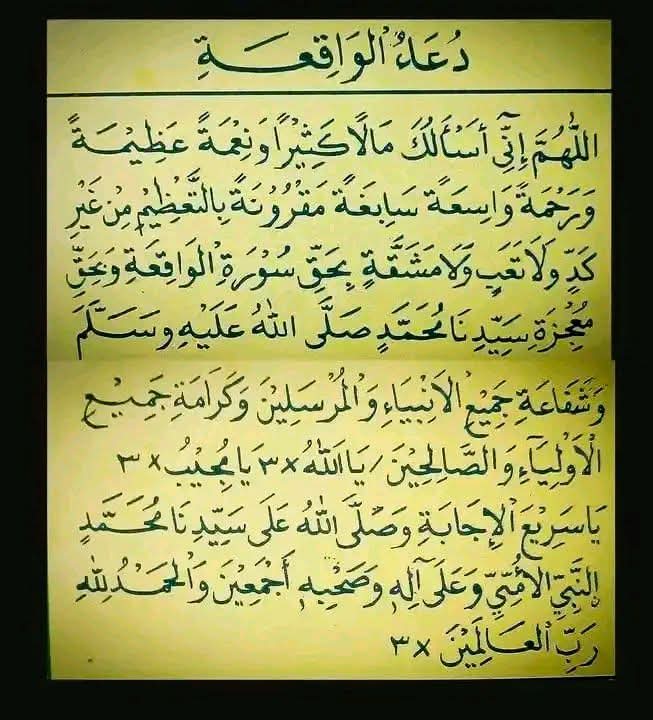 دُعَاءُ الْوَاقِعَةِ
اللّٰهُمَّ إِنِّيْ أَسْأَلُكَ مَالًا كَثِيْرًا وَنِعْمَةً عَظِيْمَةً
وَرَحْمَةً وَاسِعَةً سَابِغَةً مَقْرُوْنَةً بِالتَّعْظِيْمِ مِنْ غَيْرِ
كَدٍّ وَلَا تَعَبٍ وَلَا مَشَقَّةٍ بِحَقِّ سُوْرَةِ الْوَاقِعَةِ وَبِحَقِّ
مُعْجِزَةِ سَيِّدِنَا مُحَمَّدٍ صَلَّى اللهُ عَلَيْهِ وَسَلَّمَ
وَشَفَاعَةِ جَمِيْعِ الْاَنْبِيَاءِ وَالْمُرْسَلِيْنَ وَكَرَامَةِ جَمِيْعِ
الْاَوْلِيَآءِ وَالصَّالِحِيْنَ / يَا اَللهُ ×٣ يَا مُجِيْبُ ×٣
يَا سَرِيْعَ الْإِجَابَةِ وَصَلَّى اللهُ عَلَى سَيِّدِنَا مُحَمَّدٍ
النَّبِيِّ الْأُمِّيِّ وَعَلَى آلِهِ وَصَحْبِهِ أَجْمَعِيْنَ وَالْحَمْدُ لِلّٰهِ
رَبِّ الْعَالَمِيْنَ ×٣